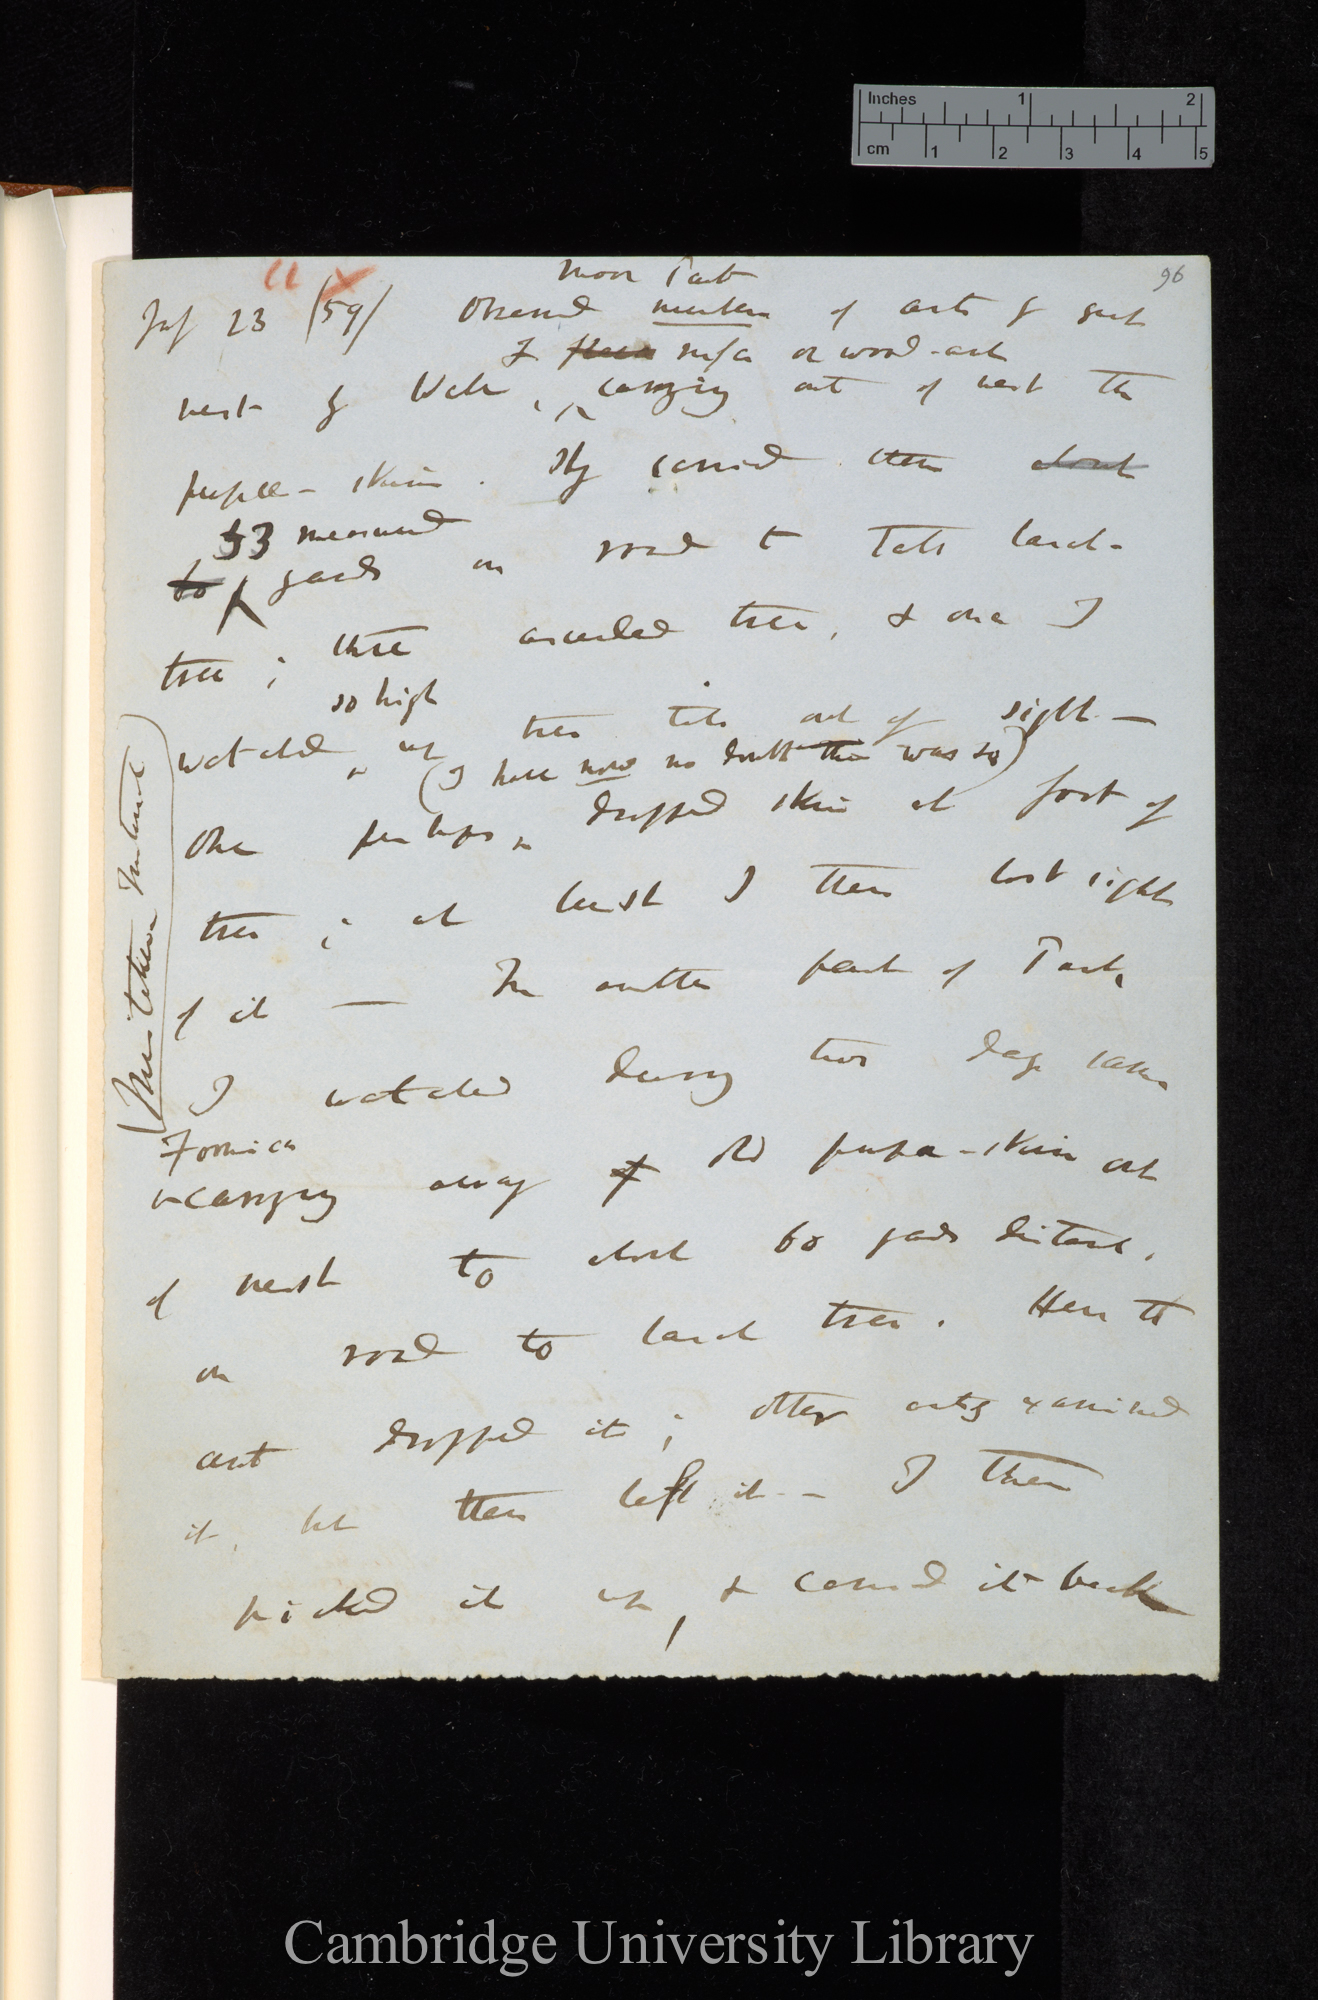 Inches 1 2
cm 1 2 3 4 5
96
11
Moor Park
July 23 (59) Observed numbers of ants of great
F. rufa or wood-ant
nest of Wells, carrying out of nest the
pupae-skins. They carried them about
53 measured
60 yards on road to tall larch-
tree; three ascended tree, & one I
so high
watched up tree till out of sight —
(I have now no doubt this was so)
One perhaps dropped skin at foot of
tree; at least I then lost sight
of it — In another part of Park,
I watched during two days same
Formica
carrying away of old pupa-skin out
of nest to about 60 yards distant,
on road to larch tree. Here the
ant dropped it; other ants examined
it, but then left it — I then
picked it up, & carried it back
(Mistaken Instinct)
Cambridge University Library